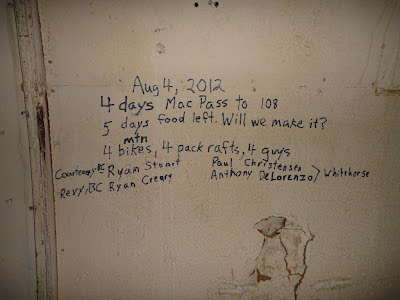 Aug 4, 2012
4 days Mac Pass to 108
5 days food left. Will we make it?
mtn
4 bikes, 4 pack rafts, 4 guys
Courtenay, BC Ryan Stuart Paul Christensen
Revy, BC Ryan Creary Anthony DeLorenzo } Whitehorse